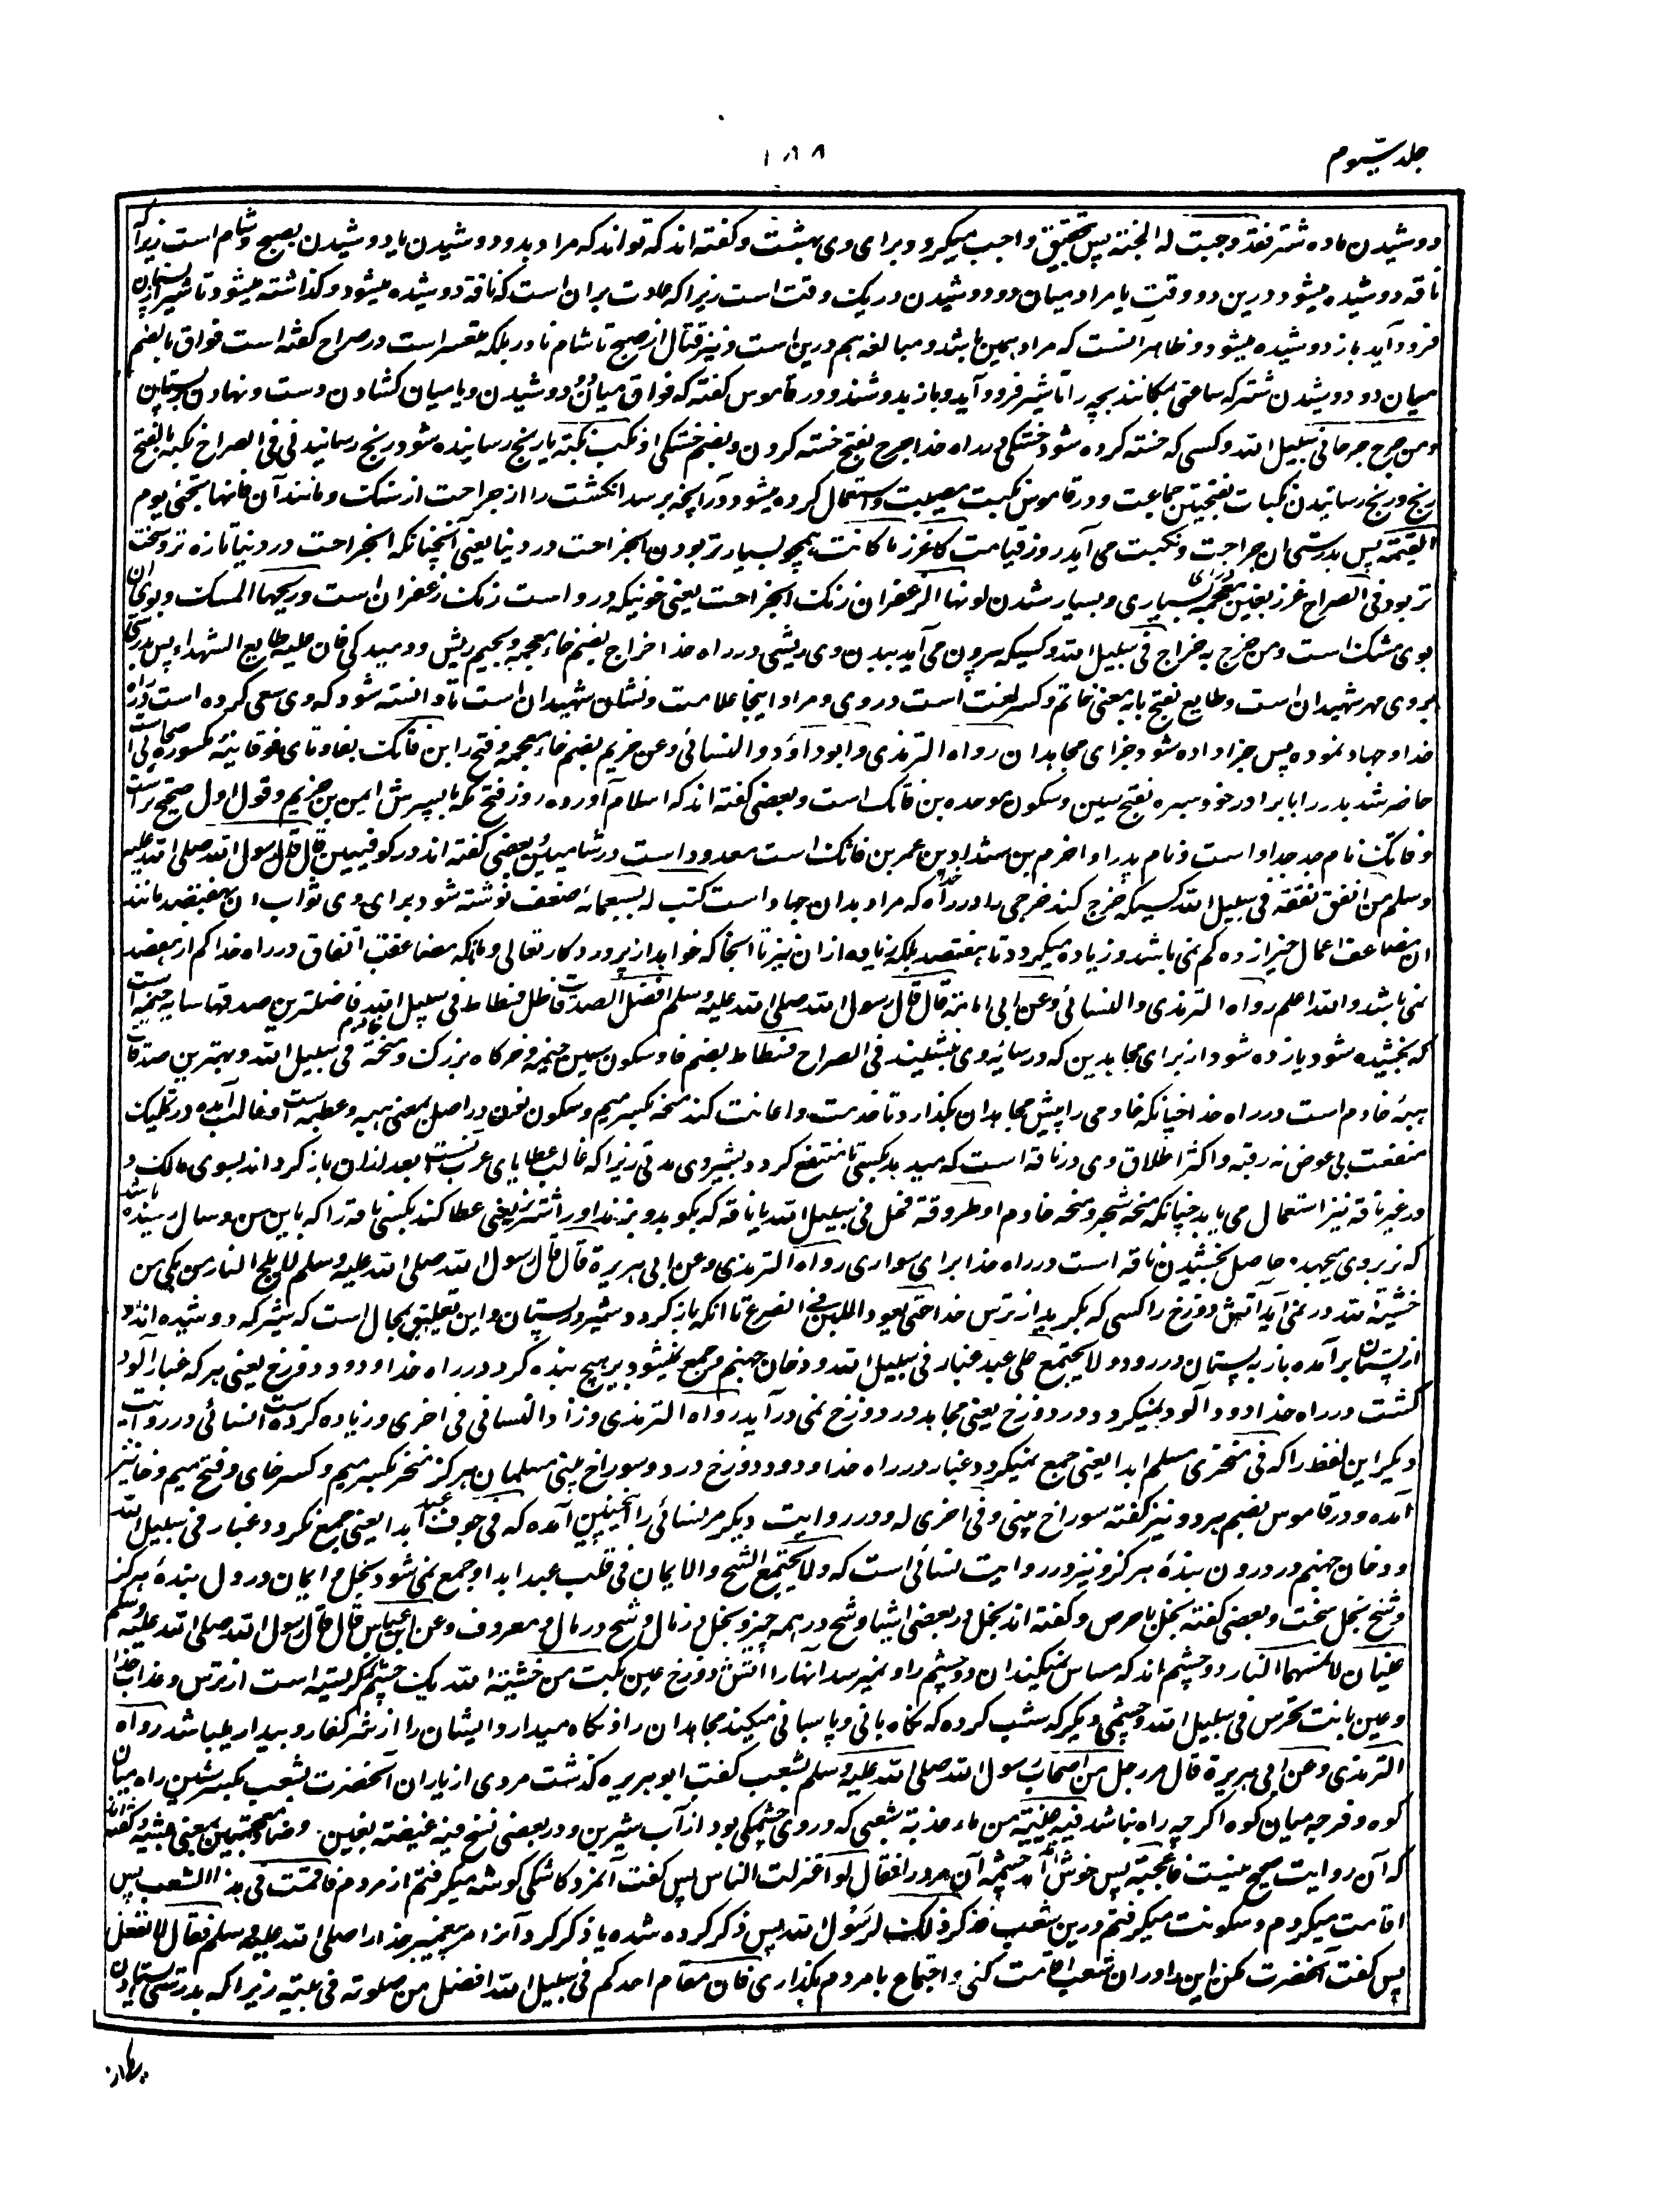 جلد سیوم
۱۸۸
دوشیدن ماده شتر فقد وجبت له الجنة پس تحقیق واجب میگردد برای وی بهشت وگفته اند که تواند که مراد بدو دوشیدن یا دوشیدن بصبح وشام است زیرا که
ناقه دوشیده میشود درین دو وقت یا مراد میان دو دوشیدن در یک وقت است زیرا که عادت بران است که ناقه دوشیده میشود و گذاشته میشود تا شیر از پستان
فرود آید باز دوشیده میشود و ظاهر آنست که مراد همین باشد و مبالغه هم درین است و نیز قتال از صبح تا شام نادر بلکه متعسر است در صراح گفته است فواق بالضم
میان دو دوشیدن شتر که ساعتی بمکانند بچه را تا شیر فرود آید و باز بدوشند و در قاموس گفته که فواق میان دو دوشیدن و یا میان کشادن دست و نهادن بر پستان
ومن جرح جرحا فی سبیل الله وکسی که خسته کرده شود خستگی در راه خدا جرح بفتح خسته کردن وبضم خستگی او نکب نکبة یا رنج رسانیده شود رنج رسانیدنی فی الصراح نکبه بالفتح
رنج ورنج رسانیدن نکبات بفتحتین جماعت و در قاموس نکبت مصیبت واستعمال کرده میشود در آنچه برسد انگشت را از جراحت از سنگ و مانند آن فانها تجئ یوم
القیمة پس بدرستی ان جراحت و نکبت می آید روز قیامت کاغزر ما کانت همچو بسیارتر بودن آنجراحت در دنیا یعنی آنچنانکه آنجراحت در دنیا تازه تر و سخت
تر بود فی الصراح غزر بغین معجمه بسیاری و بسیار شدن لونها الزعفران رنگ آنجراحت یعنی خونیکه در و است رنگ زعفران است وریحها المسک و بوی آن
بوی مشک است ومن خرج به خراج فی سبیل الله وکسیکه بیرون می آید ببدن وی ریشی در راه خدا خراج بضم خاء معجمه و بجیم ریش و دمیدگی فان علیه طابع الشهداء پس بدرستیکه
بروی مهر شهیدان است وطابع بفتح با بمعنی خاتم و کسر لغت است در وی و مراد اینجا علامت و نشان شهیدان است تا دانسته شود که وی سعی کرده است در راه
خدا و جهاد نموده پس جزا داده شود جزای مجاهدان رواه الترمذی وابو داؤد والنسائی وعن خریم بضم خاء معجمه و فتح را بن فاتک بفا و تای فوقانیه مکسوره صحابی است
حاضر شد بدر را با برادر خود سبره بفتح سین وسکون موحده بن فاتک است و بعضی گفته اند که اسلام آورده روز فتح مکه با پسرش ایمن بن خریم وقول اول صحیح تر است
و فاتک نام جد جد او است و نام پدر او اخرم بن شداد بن عمر بن فاتک است معدود است در شامیین و بعضی گفته اند در کوفیین قال قال رسول الله صلی الله علیه
وسلم من انفق نفقة فی سبیل الله کسیکه خرج کند خرجی را در راه خدا که مراد بدان جهاد است کتب له بسبعمائة ضعف نوشته شود برای وی ثواب ان بهفتصد مانند
ان مضاعف اعمال خیر از ده کم نمی باشد و زیاده میگردد تا بهفتصد بلکه زیاده از ان نیز تا آنجا که خواهد پروردگار تعالی وبآنکه مضاعفت انفاق در راه خدا کم از هفتصد
نمی باشد والله اعلم رواه الترمذی والنسائی وعن ابی امامة قال قال رسول الله صلی الله علیه وسلم افضل الصدقات ظل فسطاط فی سبیل الله فاضلترین صدقها سایه خیمه است
که بخشیده شود یا زده شود از برای مجاهدین که در سایه وی بنشینند فی الصراح فسطاط بضم فا و سکون سین خیمه و خرگاه بزرگ ومنحة خادم فی سبیل الله وبهترین صدقات
هبهٔ خادم است در راه خدا چنانکه خادمی را پیش مجاهدان بگذارد تا خدمت و اعانت کند منحه بکسر میم وسکون نون در اصل بمعنی هبه و عطیه است و غالب آمده در تملیک
منفعت بی عوض نه رقبه و اکثر اطلاق وی در ناقه است که میدهد بکسی تا منتفع گردد بشیر وی مدتی زیرا که غالب عطایای عرب آنست بعد از ان باز گرداند بسوی مالک و
در غیر ناقه نیز استعمال می یابد چنانکه منحه شجر و منحه خادم او طروقة فحل فی سبیل الله یا ناقه که بکوبد و بزند او را شتر نر یعنی عطا کند بکسی ناقه را که باین سن و سال رسیده باشد
که نر بر وی بجهد حاصل بخشیدن ناقه است در راه خدا برای سواری رواه الترمذی وعن ابی هریرة قال قال رسول الله صلی الله علیه وسلم لا یلج النار من بکی من
خشیة الله در نمی آید آتش دوزخ را کسی که بگرید از ترس خدا حتی یعود اللبن فی الضرع تا آنکه باز گردد شیر در پستان و این تعلیق بمحال است که شیر که دوشیده اند و
از پستان بر آمده باز به پستان در رود ولا یجتمع علی عبد غبار فی سبیل الله ودخان جهنم وجمع نمیشود بر هیچ بنده گرد در راه خدا ودود دوزخ یعنی هر که غبار آلود
گشت در راه خدا دود آلود نمیگردد در دوزخ یعنی مجاهد در دوزخ نمی در آید رواه الترمذی وزاد النسائی فی اخری و زیاده کرده است النسائی در روایت
دیگر این لفظ را که فی منخری مسلم ابدا یعنی جمع نمیگردد غبار در راه خدا ودود دوزخ در دو سوراخ بینی مسلمان هرگز منخر بکسر میم وکسر خای وفتح میم وخا نیز
آمده ودر قاموس بضم هر دو نیز گفته سوراخ بینی وفی اخری له ودر روایت دیگر مر نسائی را اینچنین آمده که فی جوف عبد ابدا یعنی جمع نگردد غبار فی سبیل الله
ودخان جهنم در درون بندهٔ هرگز ونیز در روایت نسائی است که ولا یجتمع الشح والایمان فی قلب عبد ابدا وجمع نمی شود بخل و ایمان در دل بندهٔ هرگز
وشح بخل سخت و بعضی گفته بخل با حرص وگفته اند بخل در بعضی اشیا وشح در همه چیز وبخل در مال وشح در مال ومعروف وعن ابن عباس قال قال رسول الله صلی الله علیه وسلم
عینان لا تمسهما النار دو چشم اند که مساس نمیکند ان دو چشم را ونمیرسد انها را آتش دوزخ عین بکت من خشیة الله یک چشم که گریسته است از ترس وعذاب خدا
وعین باتت تحرس فی سبیل الله وچشمی دیگر که شب کرده که نگاه بانی وپاسبانی میکند مجاهدان را ونگاه میدارد ایشان را از شر کفار و بیدار میباشد رواه
الترمذی وعن ابی هریرة قال مر رجل من اصحاب رسول الله صلی الله علیه وسلم بشعب گفت ابو هریره گذشت مردی از یاران آنحضرت بشعب بکسر شین راه میان
کوه و فرجه میان کوه اگرچه راه نباشد فیه عیینة من ماء عذبة شعبی که در وی چشمگی بود از آب شیرین و در بعضی نسخ فیه غیضة بغین وضاد معجمتین بمعنی بیشه وگفته اند
که آن روایت صحیح نیست فاعجبته پس خوش آمد چشمه آن مرد را فقال لو اعتزلت الناس پس گفت آنمرد کاشکی گوشه میگرفتم از مردم فاقمت فی هذا الشعب پس
اقامت میکردم و سکونت میگرفتم درین شعب فذکر ذلک لرسول الله پس ذکر کرده شده یا ذکر کرد آنرا مر پیغمبر خدا را صلی الله علیه وسلم فقال لا تفعل
پس گفت آنحضرت مکن این را ودر ان شعب اقامت مکنی و اجتماع با مردم بگذاری فان مقام احدکم فی سبیل الله افضل من صلوته فی بیته زیرا که بدرستی ایستادن